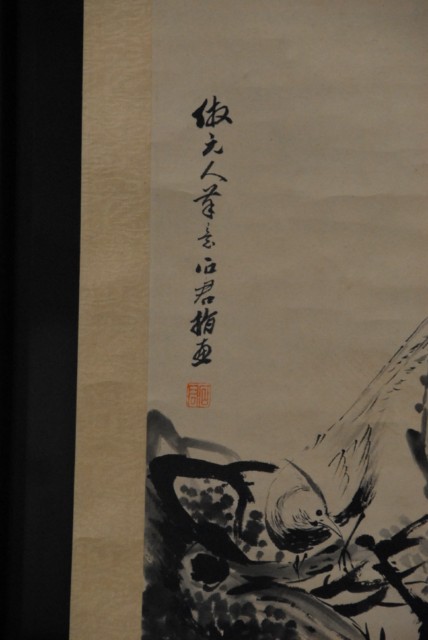 倣元人筆意石君指画